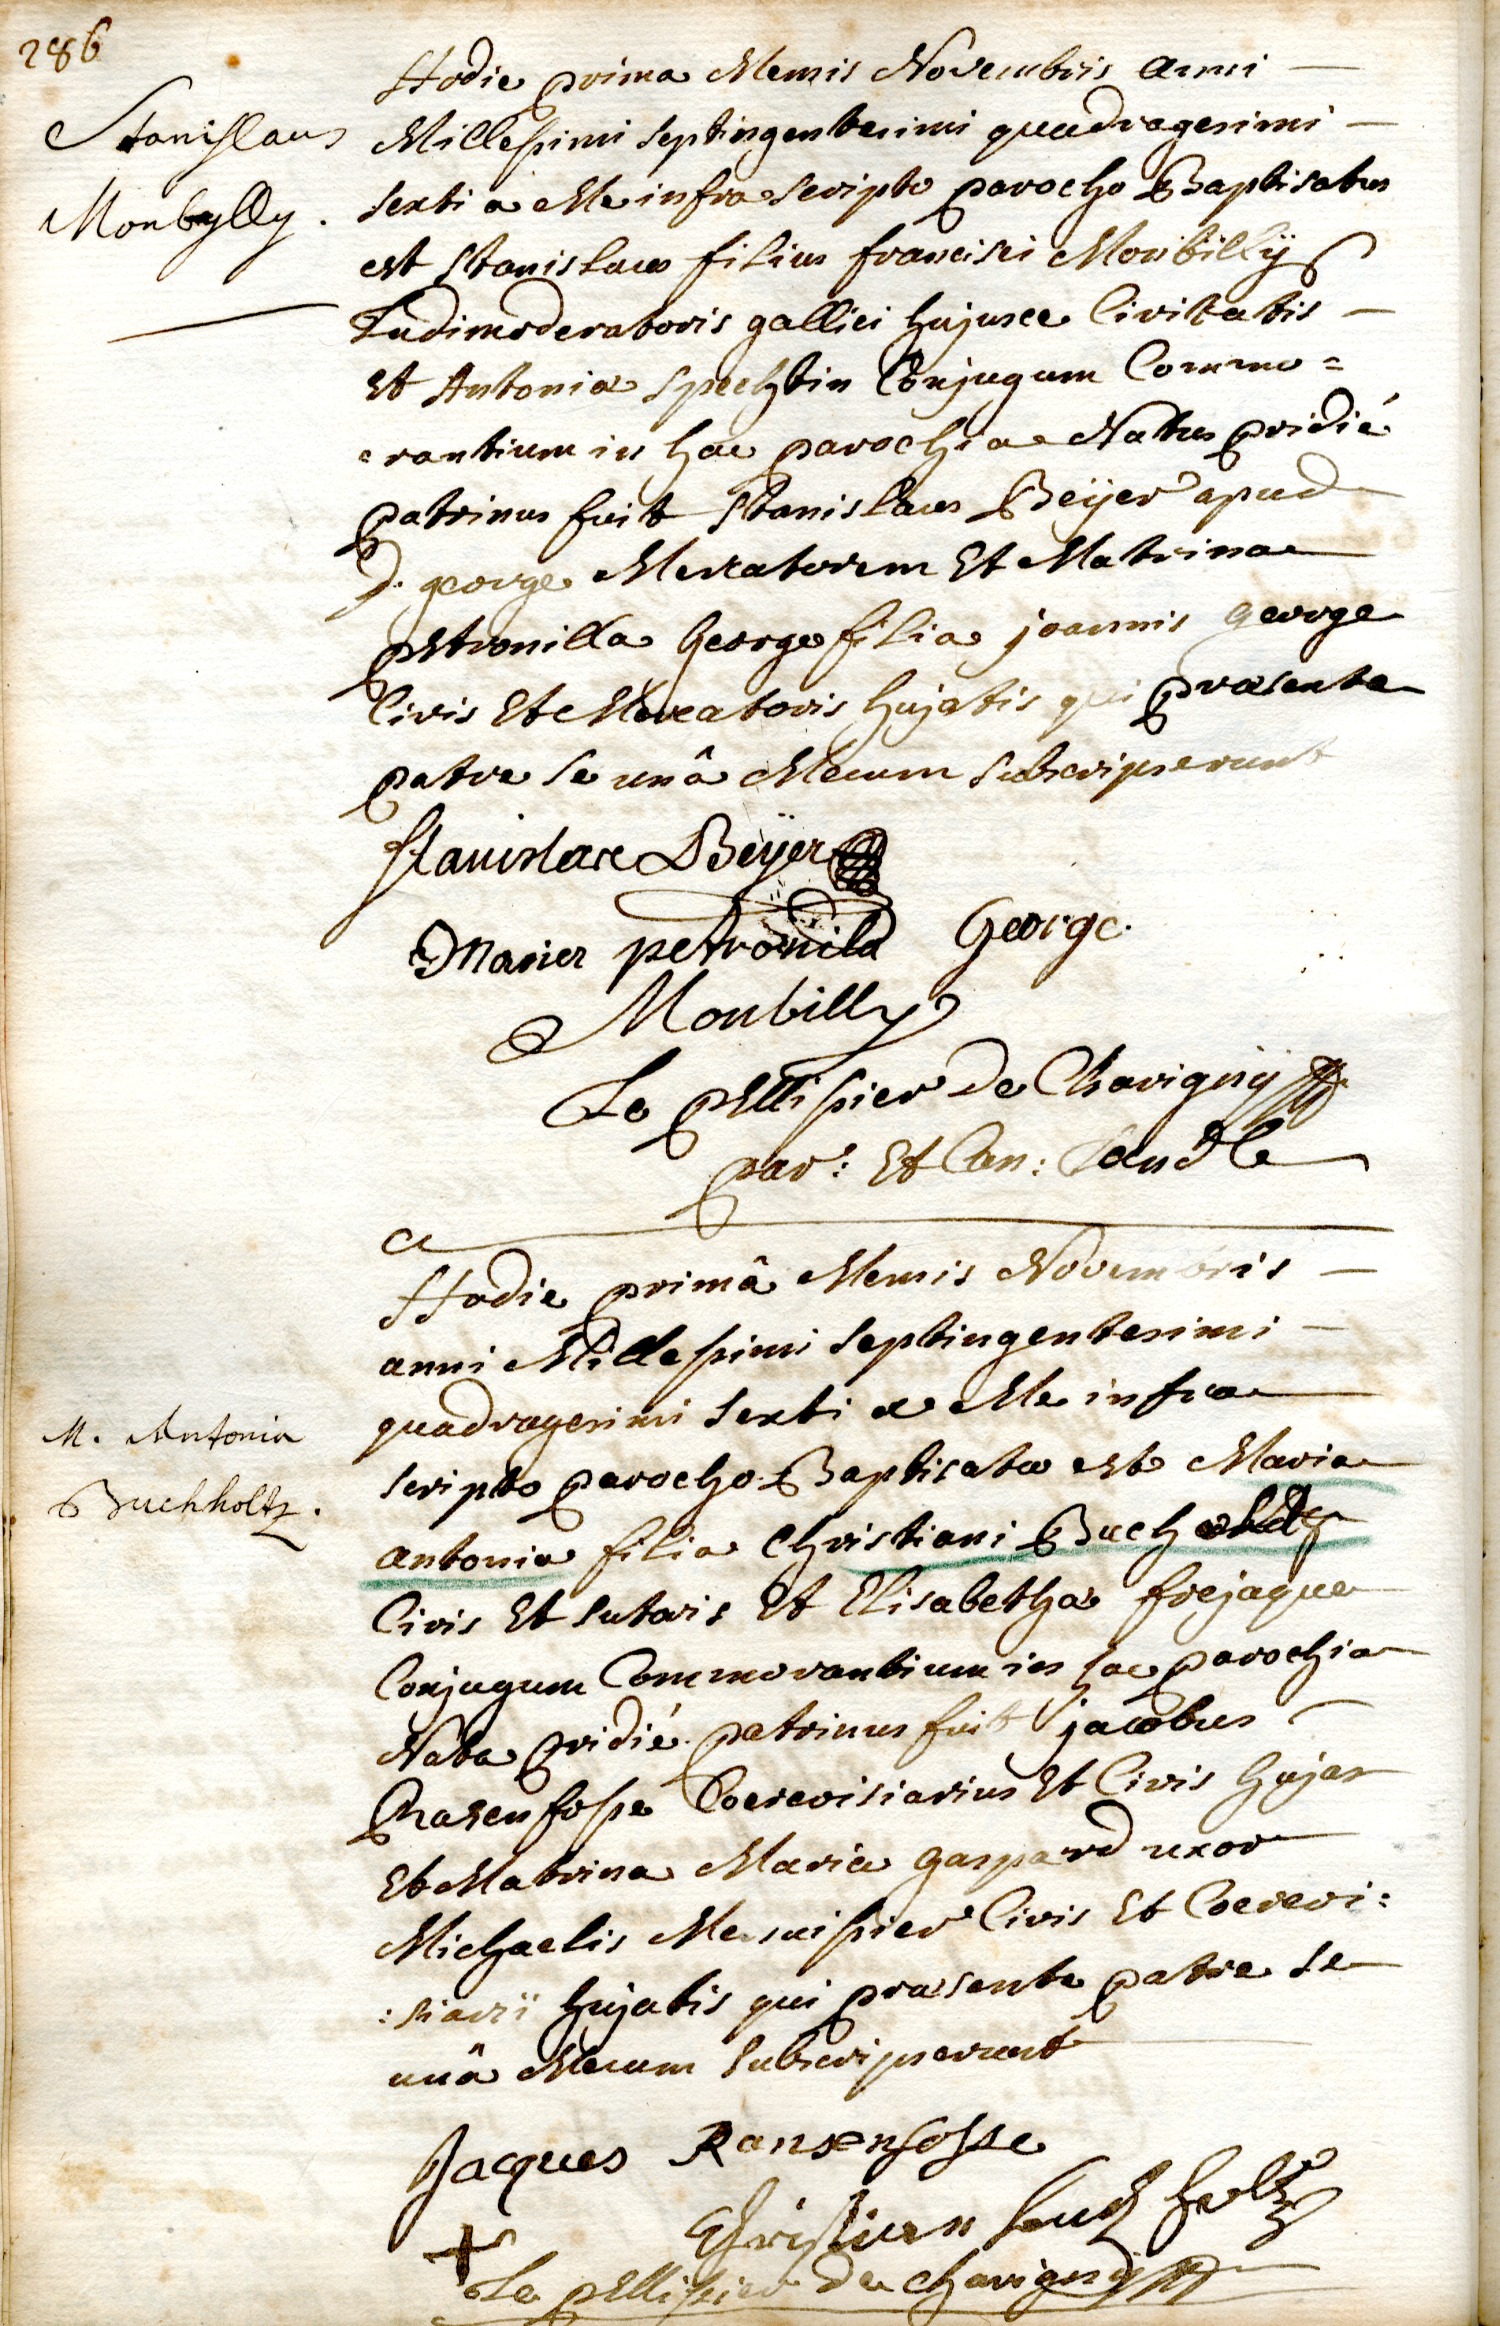 286
Stanislaus
Monbylly.
Hodie prima Mensis Novembris anni
Millesimi septingentesimi quadragesimi
sexti a Me infra scripto parocho Baptisatus
est Stanislaus filius francisci Monbillÿ
Ludimoderatoris gallici hujusce Civitatis
Et Antoniæ spechtin Conjugum Commo=
=rantium in hac parochia Natus pridié
patrinus fuit Stanislaus Beÿer apud
D. george Mercatorem Et Matrina
petronilla George filia joannis george
Civis Et Mercatoris hujatis qui præsente
patre se unâ Mecum subscripserunt
stanislaxe Beÿer
Marier petronild George.
Monbilly
Le pellissier de Chavignÿ
par: Et Can: Land
Hodie primâ Mensis Novembris
anni Millesimi septingentesimi
quadragesimi sexti a Me infra
M. Antonia
Buchholtz.
scripto parocho Baptisata est Maria
antonia filia Christiani Buchholtz
Civis Et sutoris Et Elisabethæ frejaque
Conjugum Commorantium in hac parochia
Nata pridié patrinus fuit jacobus
Rasenfosse Coerevisiarius Et Civis hujas
Et Matrina Maria gaspard uxor
Michaelis Messier Civis Et Coerevi:
:siarii hujatis qui præsente patre se
unâ Mecum subscripserunt
Jacques Ransenfosse
Christian buchholtz
+
Le pellissier de chavignÿ